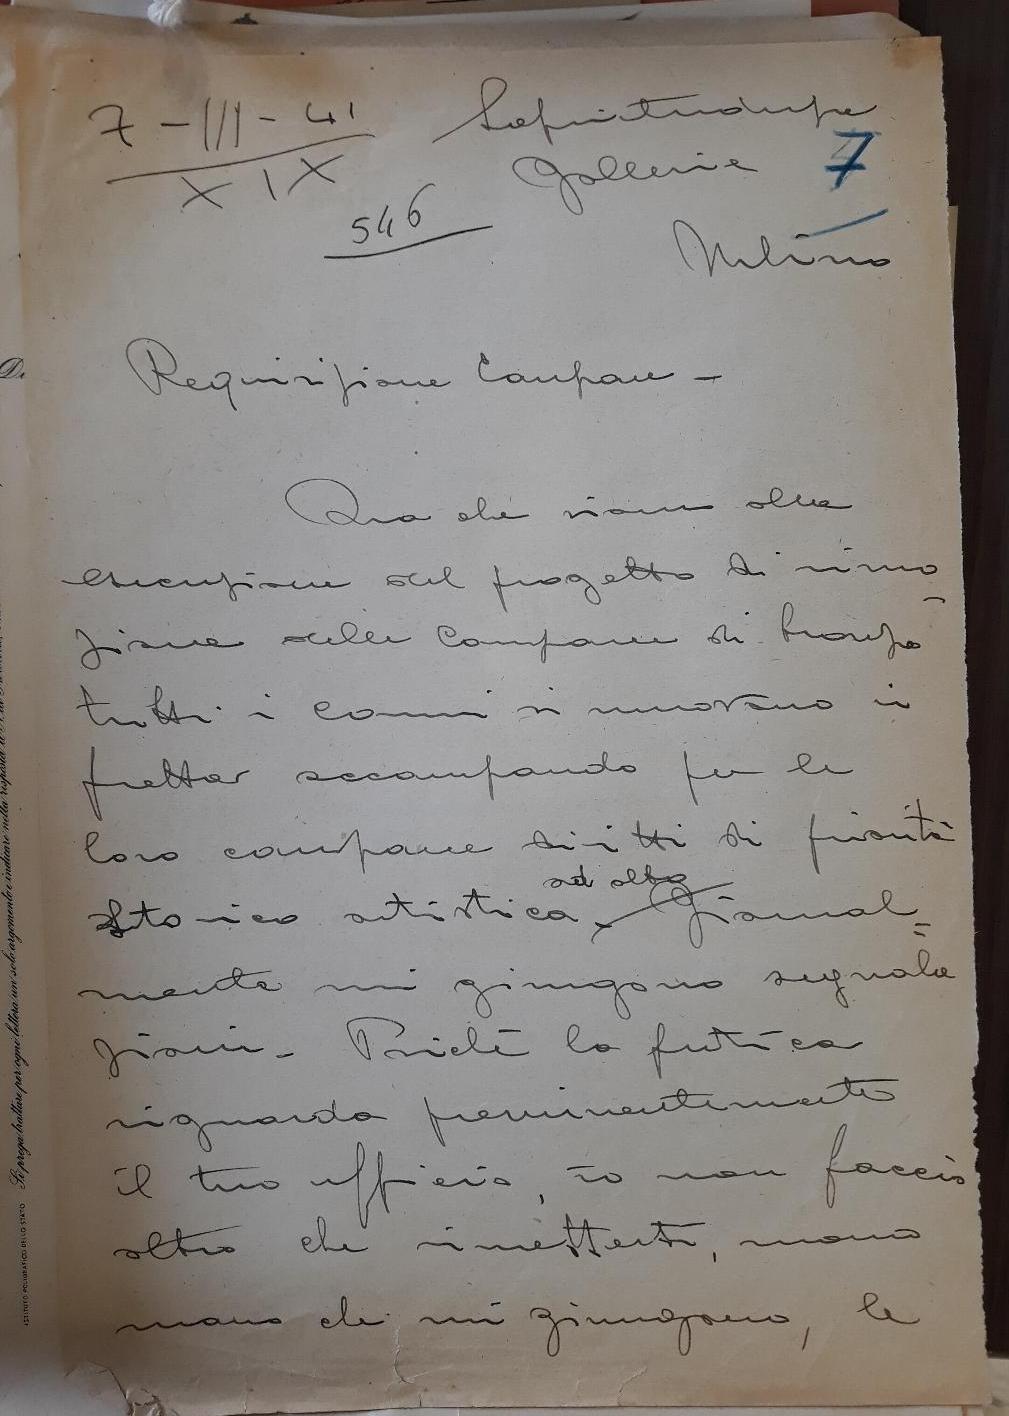 7-III-41 Soprintendenza
XIX Gallerie 7
546
Urbino
Requisizione Campane -
Ora che siamo alla
esecuzione del progetto di rimo
zione delle Campane di bronzo
tutti i comuni si muovono in
fretta accampando per le
loro campane diritti di priorità
ed altro
storico artistica. Giornal=
mente mi giungono segnala
zioni. Poichè la pratica
riguarda preminentemente
il tuo ufficio, io non faccio
altro che rimetterti, mano
mano che mi giungono, le
ISTITUTO POLIGRAFICO DELLO STATO
Si prega trattare per ogni lettera un solo argomento e indicare nella risposta